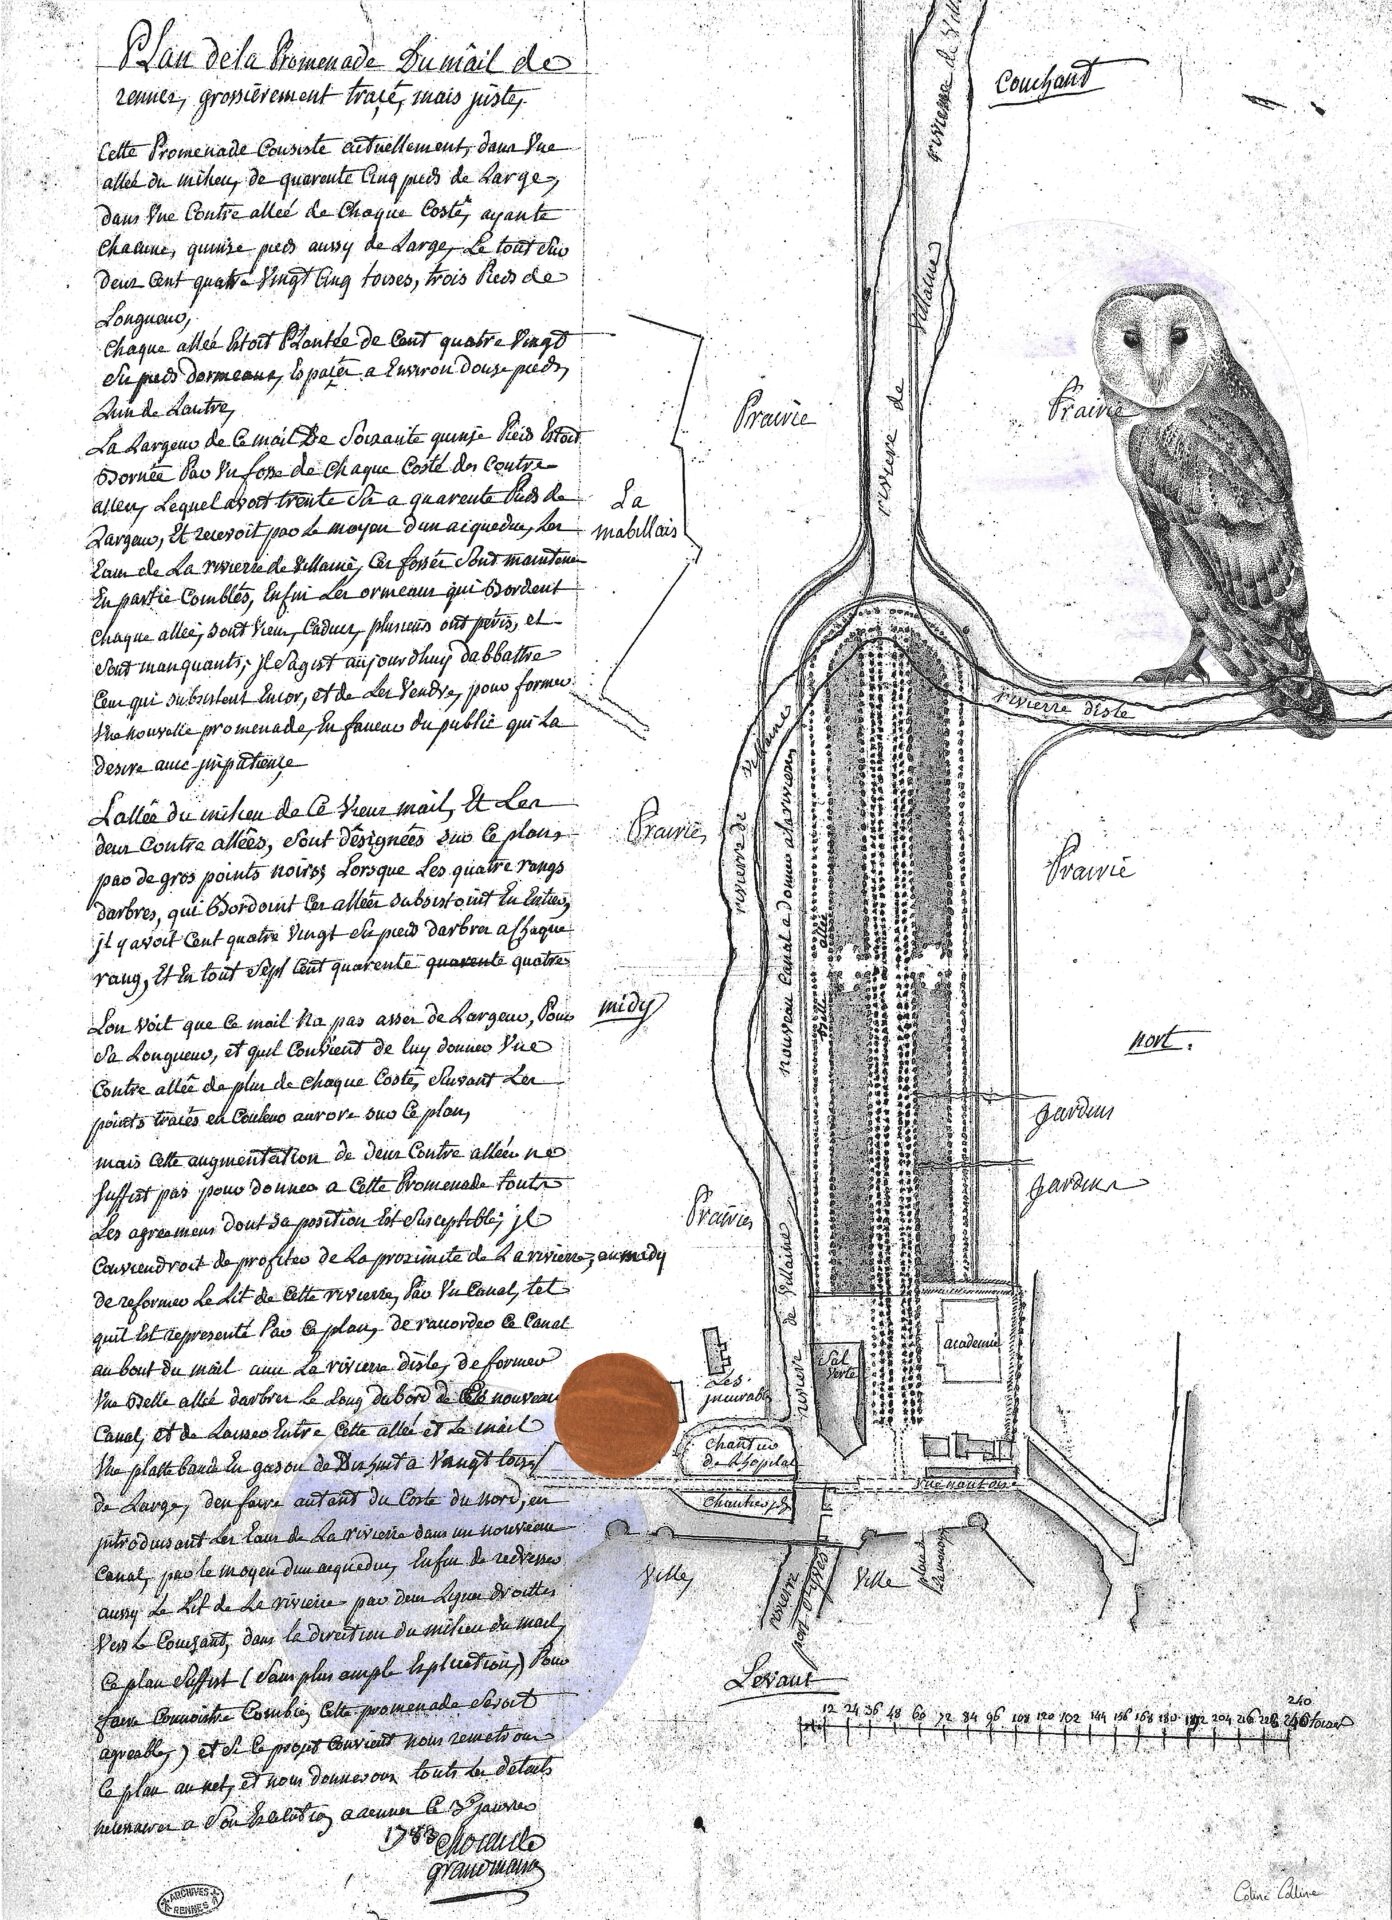 Plan de la Promenade Du mail de
rennes, grossièrement traçé, mais juste,
Cette Promenade Consiste actuellement, dans Une
allée du milieu, de quarente Cinq pieds de Large,
dans Une Contre alleé de Chaque Costé, ayante
Chacune, quinse pieds aussy de Large, Le tout Sur
deux Cent quatre Vingt Cinq toises, trois Pieds de
Longueur,
Chaque allée Estoit Plantée de Cent quatre Vingt
Six pieds dormeaux, Espacés a Environ douse pieds,
Lun de Lautre,
La Largeur de Ce mail De Soixante quinse Pieds Estoit
Bornée Par Un fosse de Chaque Costé des Contre
allées, Lequel avoit trente Six a quarente Pieds de
Largeur, Et recevoit par Le moyen dun acqueduc, Les
Eaux de La rivierre de Villaine, Ces fossés Sont maintenant
En partie Comblés, Enfin Les ormeaux qui Bordent
Chaque allée, sont Vieux, Caducs, plusieurs ont péris, et
Sont manquants; il Sagist aujourdhuy dabbattre
Ceux qui subsistent Encor, et de Les Vendre, pour former
Une nouvelle promenade, En faveur du public qui La
desire avec impatience
Lallée du milieu de Ce Vieux mail, Et Les
deux Contre allées, Sont désignées sur Ce plan,
par de gros points noirs; Lorsque Les quatre rangs
darbres, qui Bordoint Ces allées subsistoint En Entier,
il y avoit Cent quatre Vingt Six pieds darbres a Chaque
rang, Et En tout Sept Cent quarente quarente quatre
Lon Voit que Ce mail Na pas assez de Largeur, Pour
Sa Longueur, et quil Convient de luy donner Une
Contre allée de plus de Chaque Costé, Suivant Les
points tracés en Couleur aurore sur Ce plan,
mais Cette augmentation de deux Contre allées ne
Suffist pas pour donner a Cette Promenade toute
Les agreemens dont Sa position Est Susceptible; il
Conviendroit de profiter de La proximité de La rivierre, au midy
de reformer Le Lit de Cette rivierre, Par Un Canal, tel
quil Est representé Par Ce plan, de racorder Ce Canal
au bout du mail avec La rivierre disle, de former
Une Belle allée darbres Le Long du bord de Ce nouveau
Canal, et de Laisser Entre Cette allée et Le mail
Une platte bande En gason de Dix huit a Vingt toises
de Large, den faire autant du Coste du Nord, en
introduisant Les Eaux de La rivierre dans un nouveau
Canal, par le moyen dun acqueduc, Enfin de redresser
aussy Le Lit de La rivierre par deux Lignes droittes
Vers Le Couchant, dans la direction du milieu du mail,
Ce plan Suffist (Sans plus ample Explication,) Pour
faire Connoistre Combien Cette promenade Seroit
agreable,) et Si Ce projet Convient nous remetrons
Ce plan au net, et nous donnerons touts les détails
necessaires a Son Execution, a rennes Ce 3e janvier
1783
grandmaison
ARCHIVES
RENNES
Couchant
rivierre de Villaine
rivierre de Villaine
Prairie
Prairie
La
mabillais
rivierre disle
rivierre de Villaine
nouveau Canal a donner a la rivierre
belle allée
Prairie
Prairie
midy
nort.
gardins
gardins
Prairie
rivierre de Villaine
academie
Sal
Verte
Les
incurables
Chantier
de Lhopital
Chantier
rue nantoise
Ville
rivierre
Ville
Levant
12 24 36 48 60 72 84 96 108 120 102 144 156 168 180 192 204 216 228 240 toises
240
Coline Colline